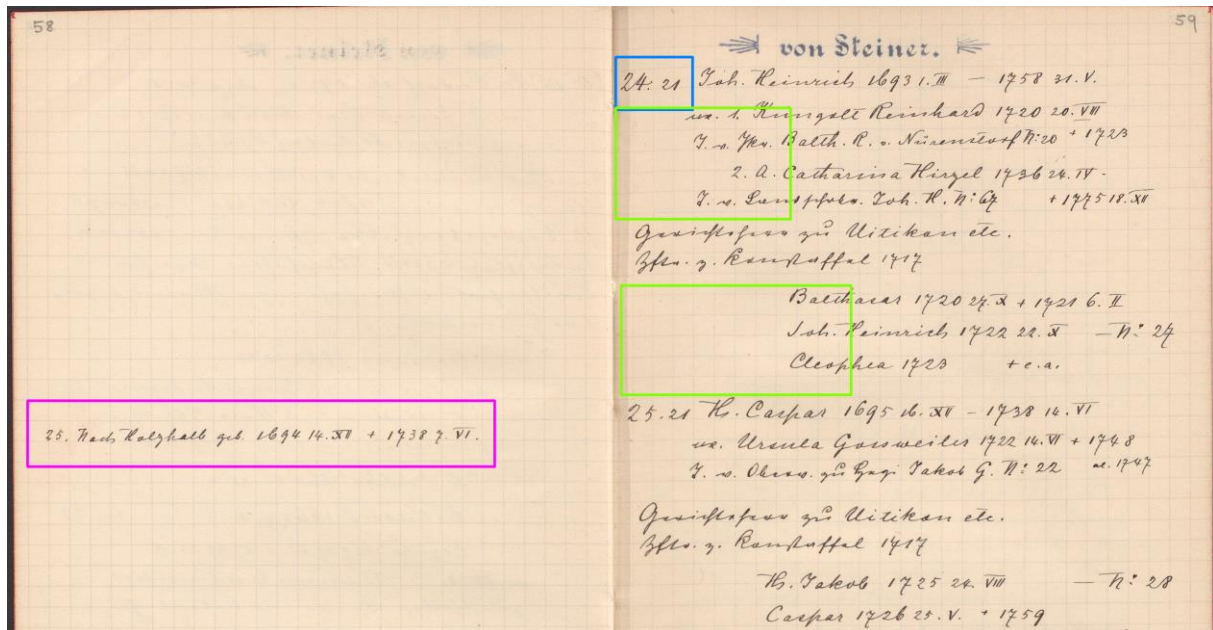 58
25. Nach Holzhalb geb. 1694 14. XII + 1738 7. VI.
59
von Steiner.
24. 21 Joh. Heinrich 1693 1. III — 1758 31. V.
ux. 1. Küngolt Reinhard 1720 20. VIII
T. v. Jkr. Balth. R. v. Nürenstorf N: 20 + 1723
2. A. Catharina Hirzel 1736 24. IV.
T. v. Landschrbr. Joh. H. N: 67 + 1775 18. XII
Gerichtsherr zu Uitikon etc.
Zftr. z. Konstaffel 1717
Balthasar 1720 27. X + 1721 6. II
Joh. Heinrich 1722 22. X — N: 27
Cleophea 1723 + c. a.
25. 21 Hs. Caspar 1695 16. XII - 1738 14. VI
ux. Ursula Gossweiler 1722 14. VI + 1748
T. v. Obervogt zu Hegi Jakob G. N: 22 al. 1747
Gerichtsherr zu Uitikon etc.
Zftr. z. Konstaffel 1717
Hs. Jakob 1725 24. VIII — N: 28
Caspar 1726 25. V. + 1759